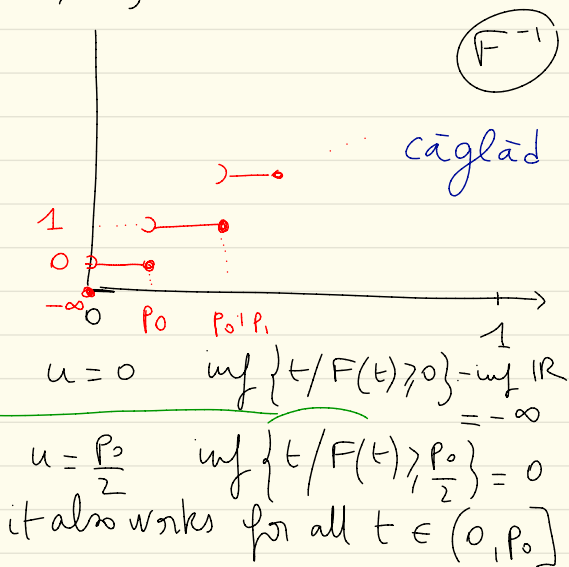 F⁻¹
càglàd
1
0
-∞
0 p₀ p₀+p₁ 1
u = 0 inf {t / F(t) ⩾ 0} = inf IR
= -∞
u = p₀/2 inf {t / F(t) ⩾ p₀/2} = 0
it also works for all t ∈ (0, p₀]